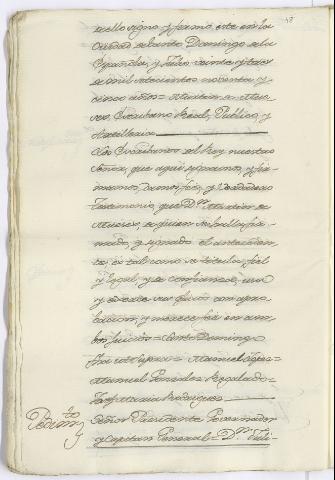 sello signo y firmo este en la
Ciudad de Santo Domingo de la
Española, y Julio veinte y tres
de mil setecientos noventa y
cinco años = Martin de
Escribano Real, Publico, y
Los Escribanos del Rey nuestro
Señor, que aqui signamos, y fir-
mamos, damos fee, y verdadero
testimonio, que Dn. Martin de
de quien se halla fir-
mado, y signado el anteceden-
te, es tal como se titula, fiel
y legal, y de confianza, usa
y exerce su oficio con apro-
bacion, y merece fee en am-
bos juicios = Santo Domingo
fha ut supra = Manuel
Manuel Gonzales Regalado =
Josef Maria Rodriguez
Pedimto
Señor Presidente Governador
y Capitan General = Dn.